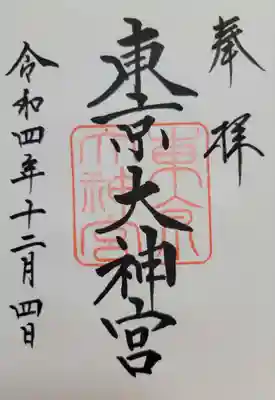 奉拝
東京大神宮
東京大神宮
令和四年十二月四日